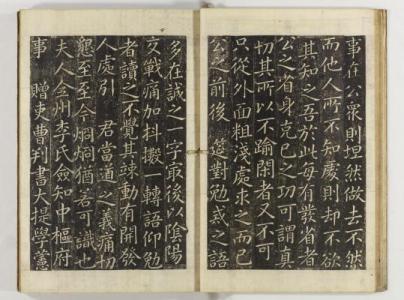 事在公衆則坦然做去不然
而他人所不知處則却不欲
其知之吾於此每有發省者
公之省身克已之功可謂真
切其所以不踰閑者又不可
只從外面粗淺處求之而已
公之前後筵對勉戒之語
多在誠之一字最後以陰陽
交戰痛加抖擻一轉語仰勉
者讀之不覺其竦動有開發
人處引 君當道之義痛切
懇至至今炯炯猶若可識也
夫人全州李氏僉知中樞府
事 贈吏曹判書大提學蓍